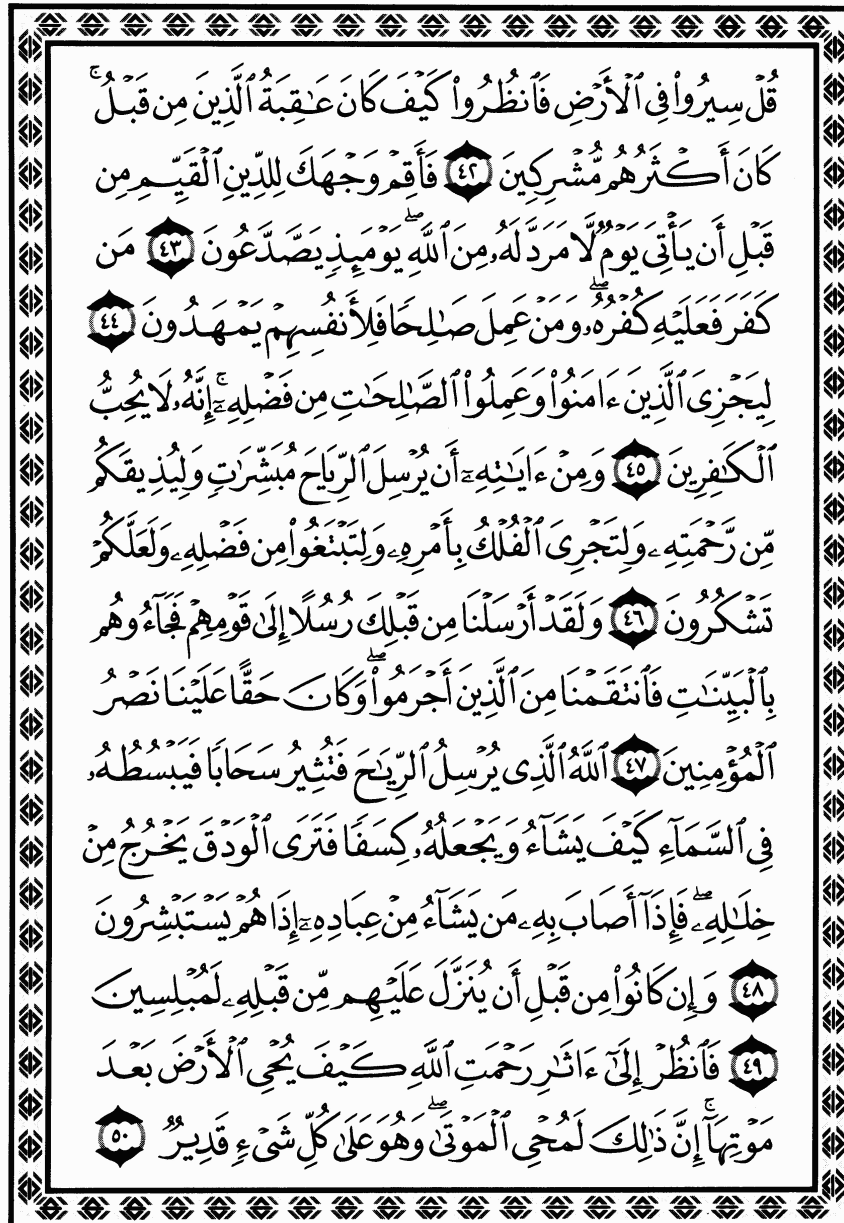 قُلْ سِيرُوا۟ فِى ٱلْأَرْضِ فَٱنظُرُوا۟ كَيْفَ كَانَ عَـٰقِبَةُ ٱلَّذِينَ مِن قَبْلُ ۚ
كَانَ أَكْثَرُهُم مُّشْرِكِينَ ٤٢ فَأَقِمْ وَجْهَكَ لِلدِّينِ ٱلْقَيِّمِ مِن
قَبْلِ أَن يَأْتِىَ يَوْمٌ لَّا مَرَدَّ لَهُۥ مِنَ ٱللَّهِ ۖ يَوْمَئِذٍ يَصَّدَّعُونَ ٤٣ مَن
كَفَرَ فَعَلَيْهِ كُفْرُهُۥ ۖ وَمَنْ عَمِلَ صَـٰلِحًا فَلِأَنفُسِهِمْ يَمْهَدُونَ ٤٤
لِيَجْزِىَ ٱلَّذِينَ ءَامَنُوا۟ وَعَمِلُوا۟ ٱلصَّـٰلِحَـٰتِ مِن فَضْلِهِۦٓ ۚ إِنَّهُۥ لَا يُحِبُّ
ٱلْكَـٰفِرِينَ ٤٥ وَمِنْ ءَايَـٰتِهِۦٓ أَن يُرْسِلَ ٱلرِّيَاحَ مُبَشِّرَٰتٍ وَلِيُذِيقَكُم
مِّن رَّحْمَتِهِۦ وَلِتَجْرِىَ ٱلْفُلْكُ بِأَمْرِهِۦ وَلِتَبْتَغُوا۟ مِن فَضْلِهِۦ وَلَعَلَّكُمْ
تَشْكُرُونَ ٤٦ وَلَقَدْ أَرْسَلْنَا مِن قَبْلِكَ رُسُلًا إِلَىٰ قَوْمِهِمْ فَجَآءُوهُم
بِٱلْبَيِّنَـٰتِ فَٱنتَقَمْنَا مِنَ ٱلَّذِينَ أَجْرَمُوا۟ ۖ وَكَانَ حَقًّا عَلَيْنَا نَصْرُ
ٱلْمُؤْمِنِينَ ٤٧ ٱللَّهُ ٱلَّذِى يُرْسِلُ ٱلرِّيَـٰحَ فَتُثِيرُ سَحَابًا فَيَبْسُطُهُۥ
فِى ٱلسَّمَآءِ كَيْفَ يَشَآءُ وَيَجْعَلُهُۥ كِسَفًا فَتَرَى ٱلْوَدْقَ يَخْرُجُ مِنْ
خِلَـٰلِهِۦ ۖ فَإِذَآ أَصَابَ بِهِۦ مَن يَشَآءُ مِنْ عِبَادِهِۦٓ إِذَا هُمْ يَسْتَبْشِرُونَ
٤٨ وَإِن كَانُوا۟ مِن قَبْلِ أَن يُنَزَّلَ عَلَيْهِم مِّن قَبْلِهِۦ لَمُبْلِسِينَ
٤٩ فَٱنظُرْ إِلَىٰٓ ءَاثَـٰرِ رَحْمَتِ ٱللَّهِ كَيْفَ يُحْىِ ٱلْأَرْضَ بَعْدَ
مَوْتِهَآ ۚ إِنَّ ذَٰلِكَ لَمُحْىِ ٱلْمَوْتَىٰ ۖ وَهُوَ عَلَىٰ كُلِّ شَىْءٍ قَدِيرٌ ٥٠